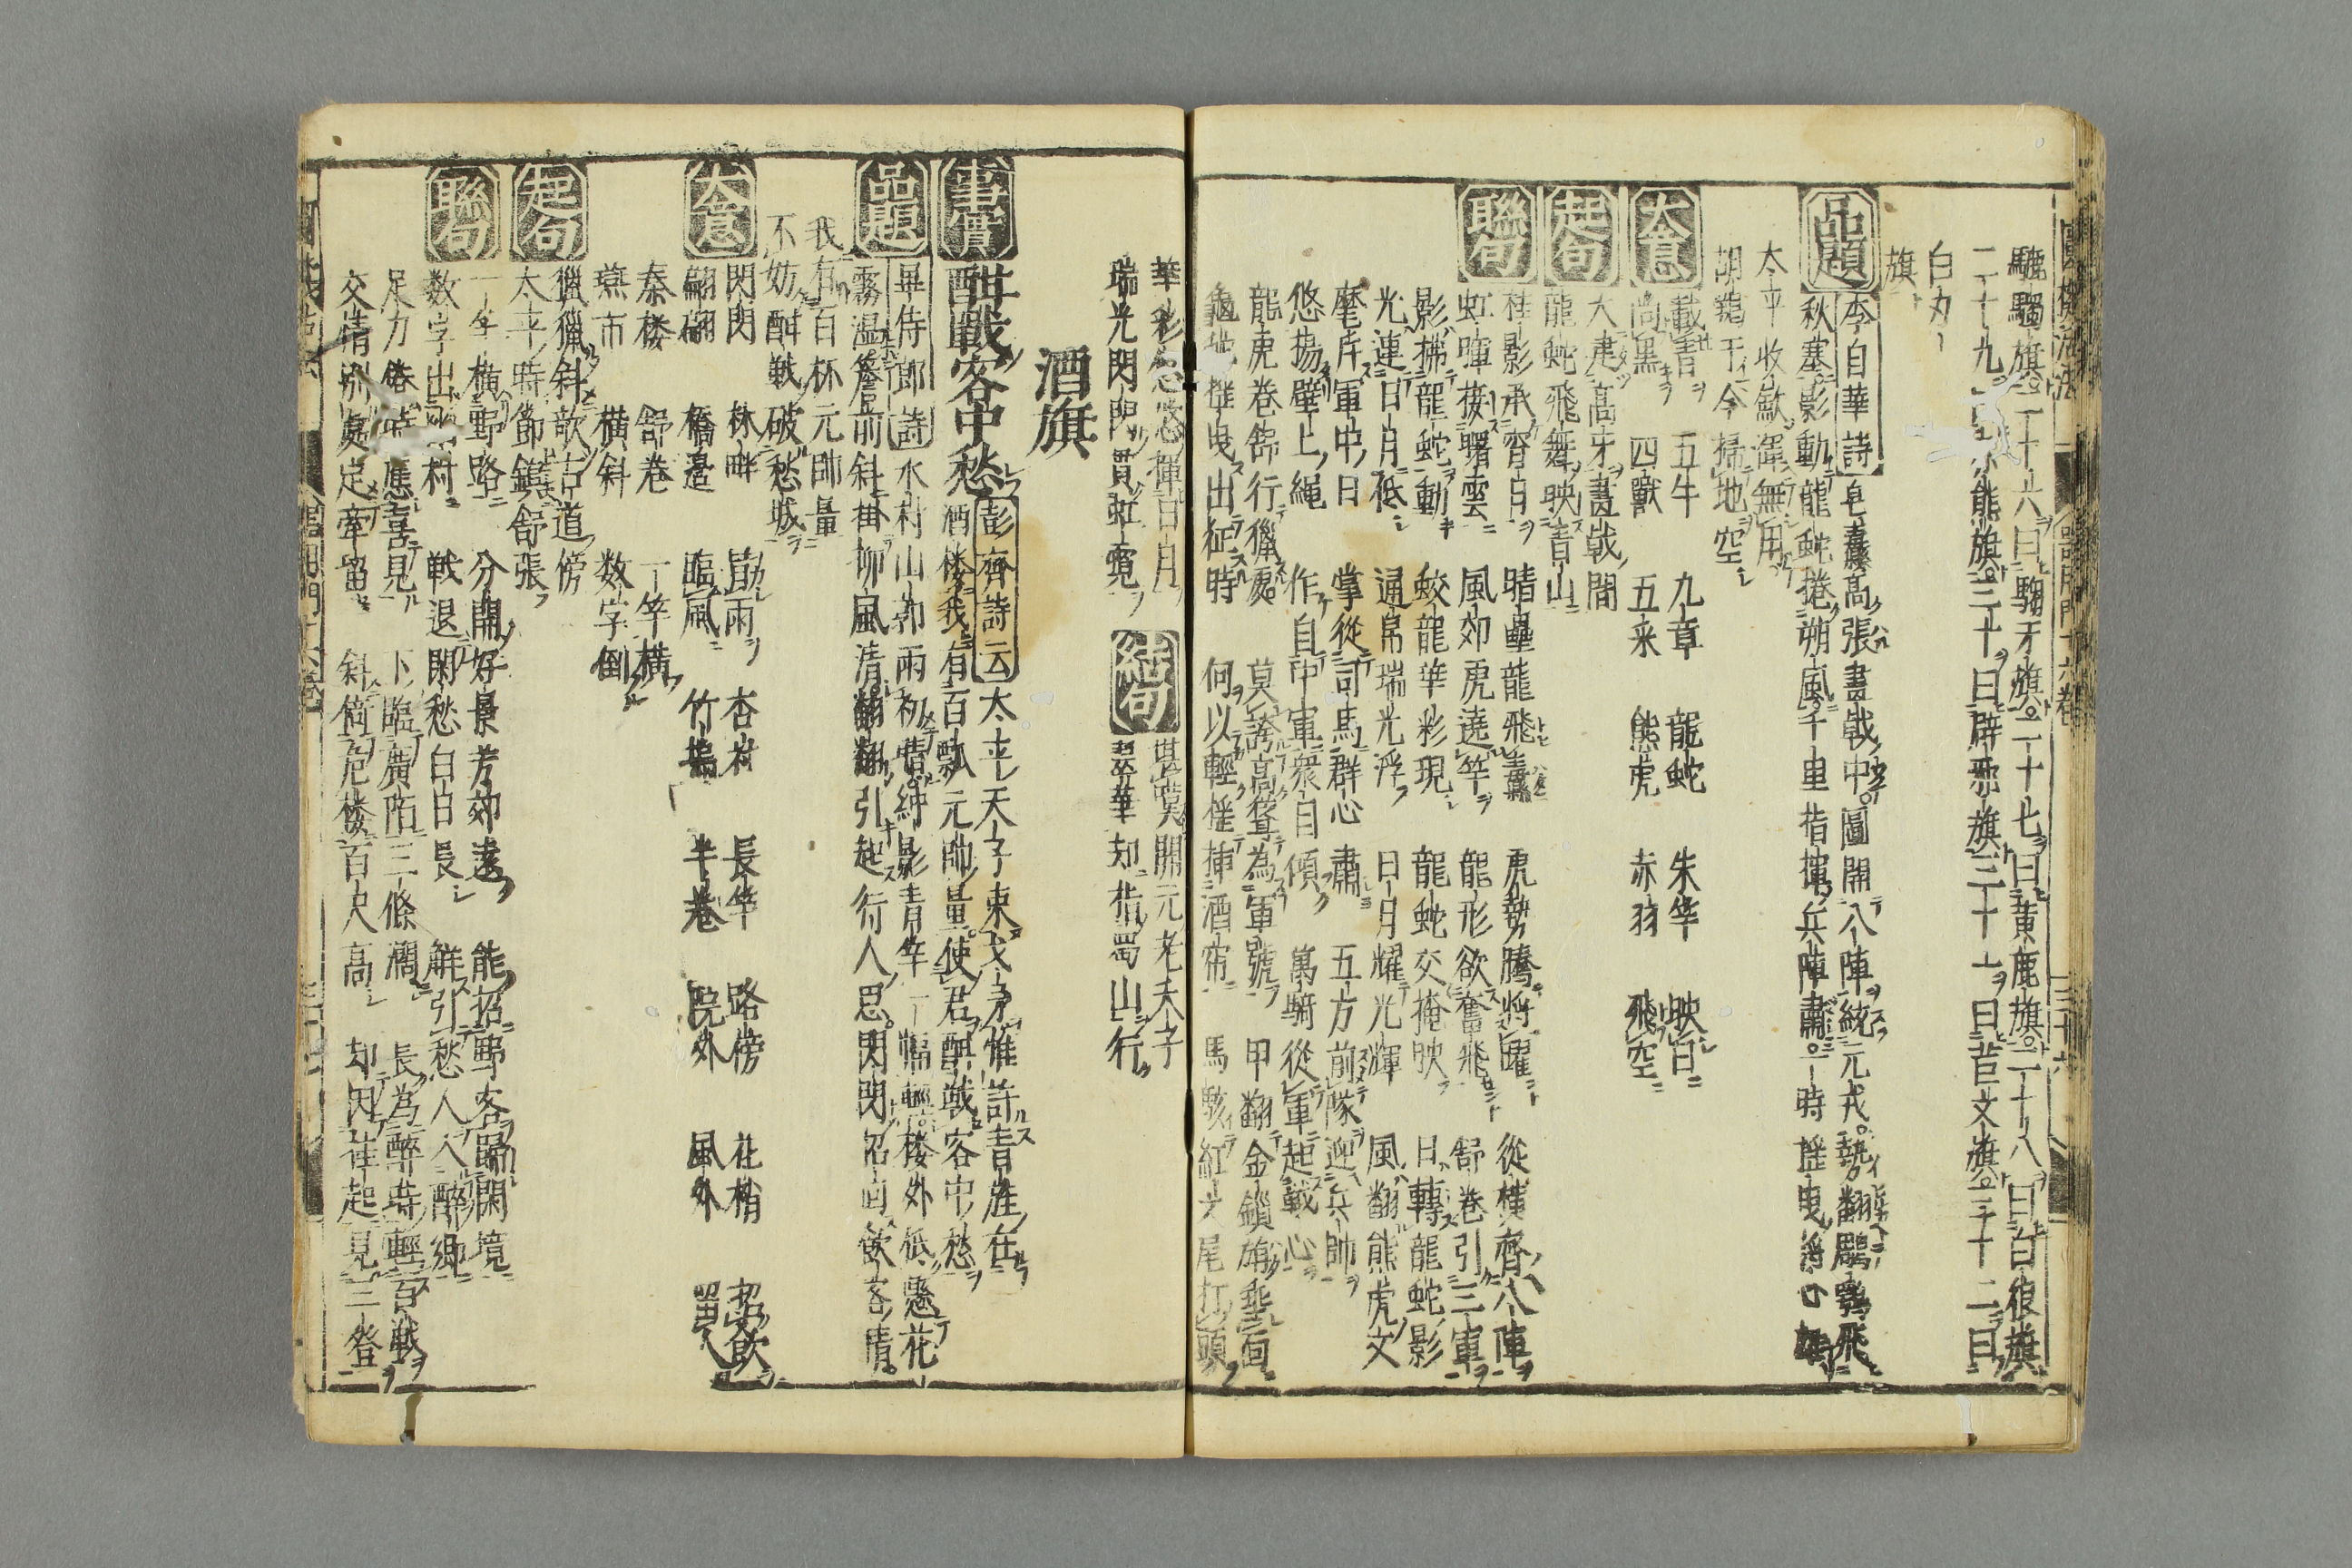 驄騮旗二十六曰騶牙旗二十七曰黄鹿旗二十八曰白狼旗
二十九曰赤熊旗三十曰辟邪旗三十一曰苣文旗三十二曰
白丸
旗
品題 李自華詩 皂纛髙張畫戟中圖開八陣統元戎勢翻鵰鶚飛
秋塞影動龍蛇捲朔風千里指揮兵陣肅一時揺曳
太平收歛渾無用
胡鶏于今掃地空
大意 載青 五牛 九章 龍蛇 朱竿 映日
尚黒 四獸 五来 熊虎 赤羽 飛空
起句 大建髙牙畫戟間
龍蛇飛舞映青山
聯句 桂影承齊白 晴壘龍飛纛 虎勢騰將曜 從横齊八陣
虹暉接曙雲 風郊虎遶竿 龍形欲奮飛 舒卷引三軍
影拂龍蛇動 蛟龍華彩現 龍蛇交掩映 日轉龍蛇影
光連日月祗 通帛瑞光浮 日月耀光輝 風翻熊虎文
麾斥軍中日 掌從司馬群心肅 五方前隊迎兵帥
悠揚壁上繩 作自中軍衆目傾 萬騎從軍起戰心
龍虎卷舒行獵處 莫誇高聳為軍號 甲翻金鎖旃垂面
出征時 何以輕揺挿酒帘 馬駭紅文尾打頭
華彩悠悠揮日月
瑞光閃閃貫虹霓 結句 堪嘆開元老天子
翠華却指蜀山行
酒旗
事實 酣戰客中愁 彭齊詩云 太平天子束戈矛惟許青旌在
酒楼我有百瓢元帥量使君酣戰客中愁
品題 畢侍郎詩 水村山郭雨初晴紳影青竿一幅輕楼外祗懸花
霧湿簷前斜掛柳風清翩翩引起行人思閃閃招囬飲客情
我有百杯元帥量
不妨酣戰破愁城
大意 閃閃 林畔 冒雨 杏村 長竿 路傍 花梢 招飲
翩翩 橋邉 臨風 竹塢 半巻 院外 風外 留人
秦楼 舒巻 一竿横
燕市 横斜 数字倒
起句 獵獵斜歌古道傍
太平時節鎮舒張
聯句 一竿横野路 分開好景芳郊遠 能招野客歸閑境
数字出 村 戰退閑愁白日長 解引愁人入醉郷
足力倦時應喜見 下臨廣陌三條濶 長為醉時輕百戰
交情别處定牽留 斜倚危楼百尺髙 却因在起見三登